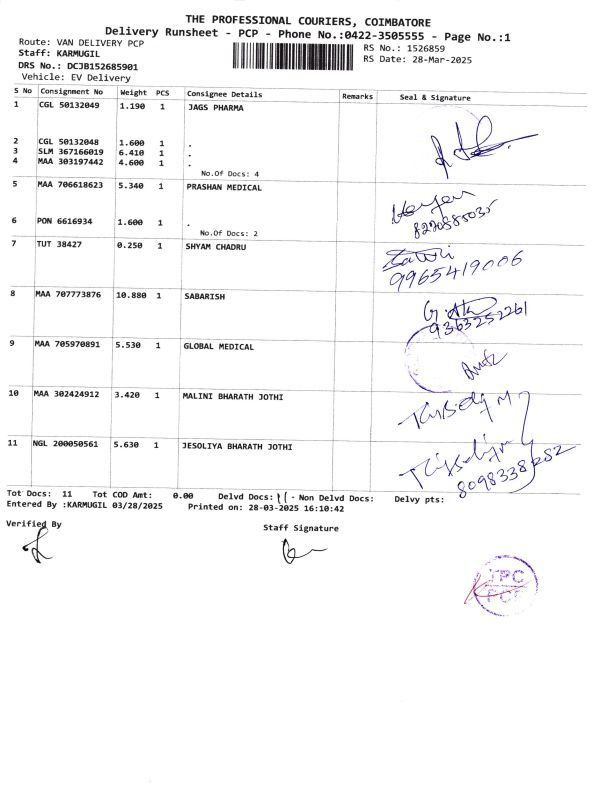 THE PROFESSIONAL COURIERS, COIMBATORE
Delivery Runsheet - PCP - Phone No.:0422-3505555 - Page No.:1
Route: VAN DELIVERY PCP
Staff: KARMUGIL
DRS No.: DCJB152685901
Vehicle: EV Delivery
RS No.: 1526859
RS Date: 28-Mar-2025
S No Consignment No Weight PCS Consignee Details Remarks Seal & Signature
1 CGL 50132049 1.190 1 JAGS PHARMA
2 CGL 50132048 1.600 1 .
3 SLM 367166019 6.410 1 .
4 MAA 303197442 4.600 1 .
No.Of Docs: 4
5 MAA 706618623 5.340 1 PRASHAN MEDICAL
6 PON 6616934 1.600 1 .
No.Of Docs: 2
7 TUT 38427 0.250 1 SHYAM CHADRU
9965419006
8 MAA 707773876 10.880 1 SABARISH
9363252261
9 MAA 705970891 5.530 1 GLOBAL MEDICAL
10 MAA 302424912 3.420 1 MALINI BHARATH JOTHI
11 NGL 200050561 5.630 1 JESOLIYA BHARATH JOTHI
8098338252
Tot Docs: 11 Tot COD Amt: 0.00 Delvd Docs: 11 - Non Delvd Docs: Delvy pts:
Entered By :KARMUGIL 03/28/2025 Printed on: 28-03-2025 16:10:42
Verified By Staff Signature
TPC
PCP